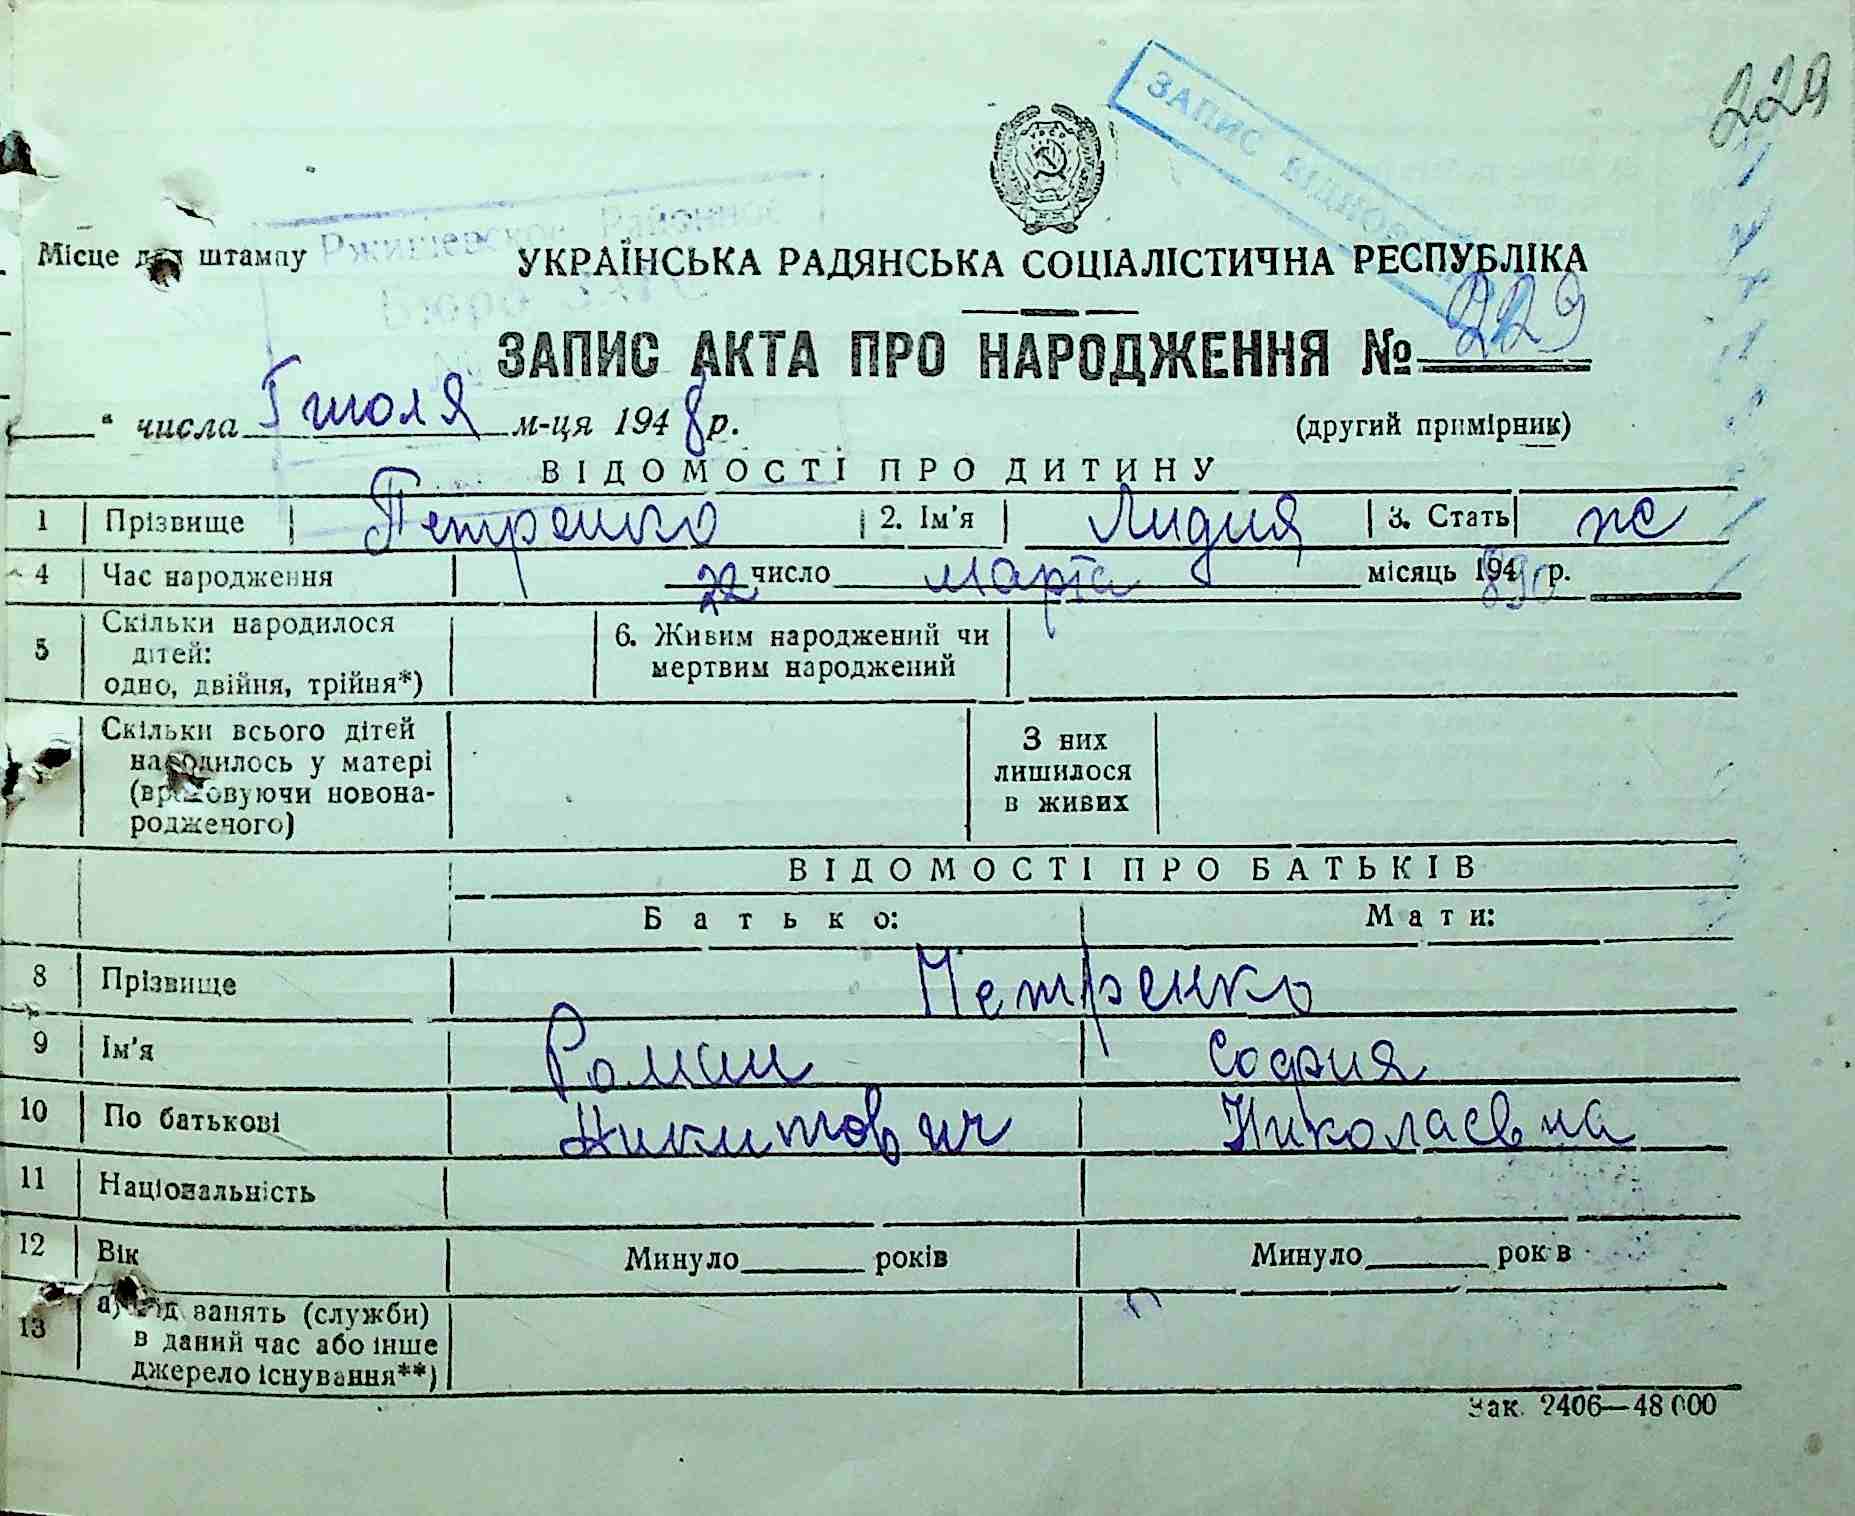 229
ЗАПИС ВІДНОВЛ
Ржищевское Районное
Бюро ЗАГС
№
Місце для штампу
УКРАЇНСЬКА РАДЯНСЬКА СОЦІАЛІСТИЧНА РЕСПУБЛІКА
ЗАПИС АКТА ПРО НАРОДЖЕННЯ № 229
" числа июля м-ця 1948 р.
(другий примірник)
ВІДОМОСТІ ПРО ДИТИНУ
1 Прізвище Петренко 2. Ім'я Лидия 3. Стать ж
4 Час народження 22 число марта місяць 194 р.
5 Скільки народилося дітей: одно, двійня, трійня*) 6. Живим народжений чи мертвим народжений
Скільки всього дітей народилось у матері (враховуючи новонародженого) З них лишилося в живих
ВІДОМОСТІ ПРО БАТЬКІВ
Батько: Мати:
8 Прізвище Петренко
9 Ім'я Роман София
10 По батькові Никитович Николаевна
11 Національність
12 Вік Минуло років Минуло років
13 а) Рід занять (служби) в даний час або інше джерело існування**)
Зак. 2406—48 000